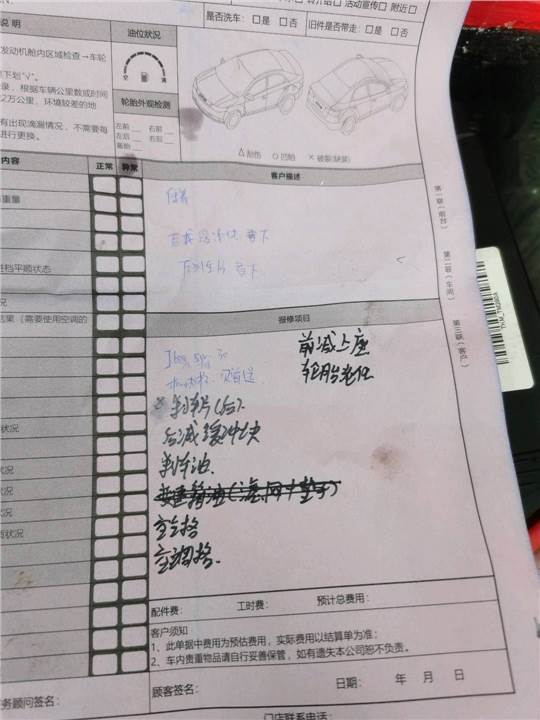 活动宣传□ 附近□
是否洗车: □是 □否 旧件是否带走: □是 □否
说 明 油位状况
发动机舱内区域检查→车轮
下划"√"。
录，根据车辆公里数或时间
2万公里、环境较差的地
有出现滴漏情况，不需要每
进行更换。
轮胎外观检测
左前 右前
左后 右后
备胎
△ 刮伤 ○ 凹陷 × 破裂(缺装)
内容 正常 异常 客户描述
保养
档平顺状态
况
结果（需要使用空调的
报修项目
前减上座
轮胎老化
刹车片(后)、
后减缓冲块
刹车油.
空气格
空调格.
状况
状况
状况
状况
第一联(前台)
第二联(车间)
第三联(客户)
配件费: 工时费: 预计总费用:
客户须知
1、此单据中费用为预估费用，实际费用以结算单为准;
2、车内贵重物品请自行妥善保管，如有遗失本公司恕不负责。
日期: 年 月 日
务顾问签名: 顾客签名:
门店联系电话: